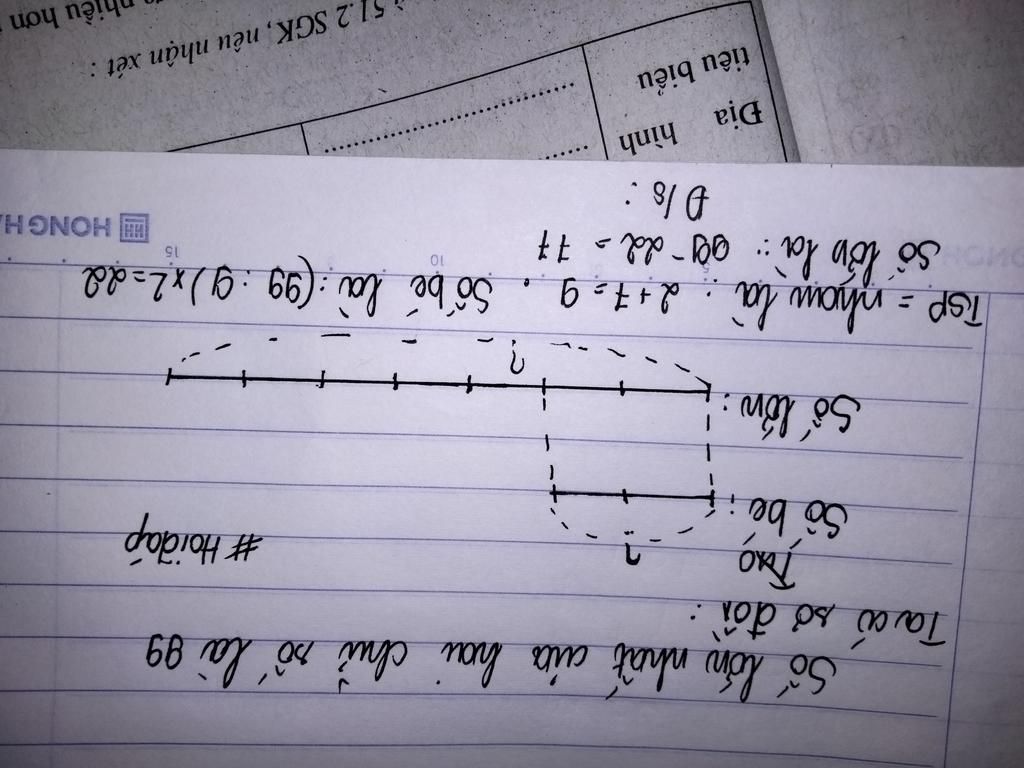 Số lớn nhất của hai chữ số là 99
Ta có sơ đồ:
#Hoidap
?
Số bé:
Số lớn:
?
= nhau là: 2+7=9. Số bé là: (99:9)x2=22
Số lớn là: 99-22=77
Đ/s:
5 10 15
HONG HA
Địa hình
tiêu biểu
51.2 SGK, nêu nhận xét:
nhiều hơn